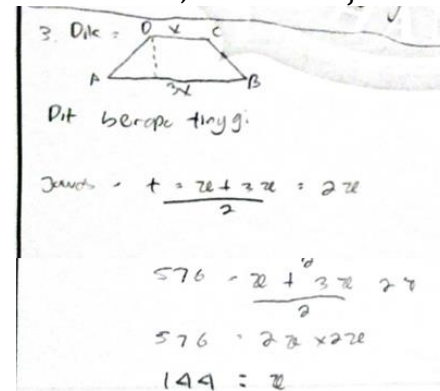 3. Dik =
D x C
A 3x B
Dit berapa tinggi
Jawab = t = x + 3x = 2x
2
576 = x + 3x 2x
2
576 = 2x × 2x
144 = x